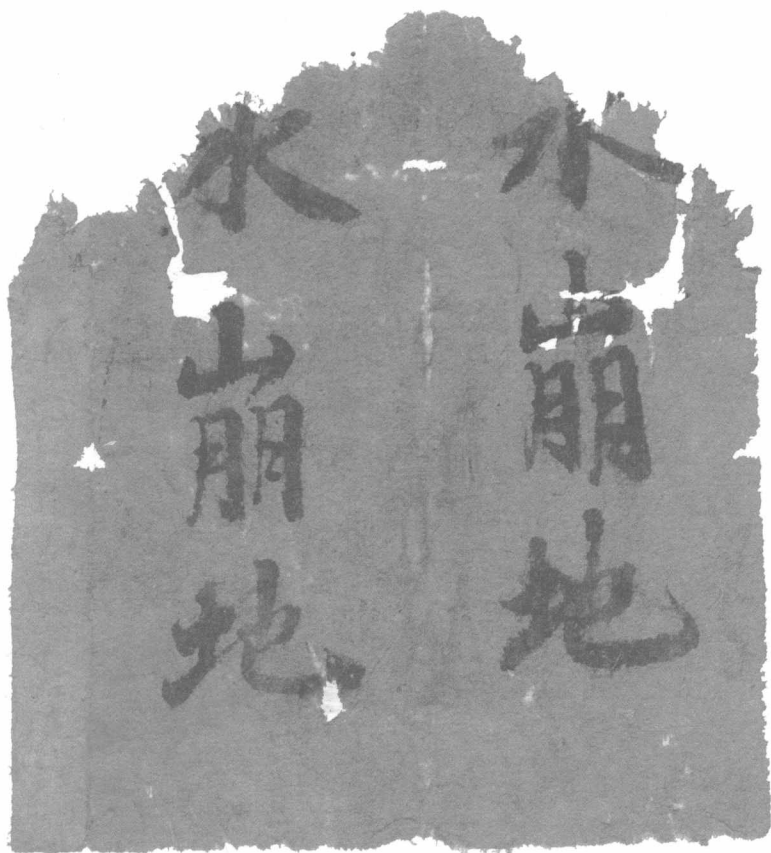 水崩地
水崩地